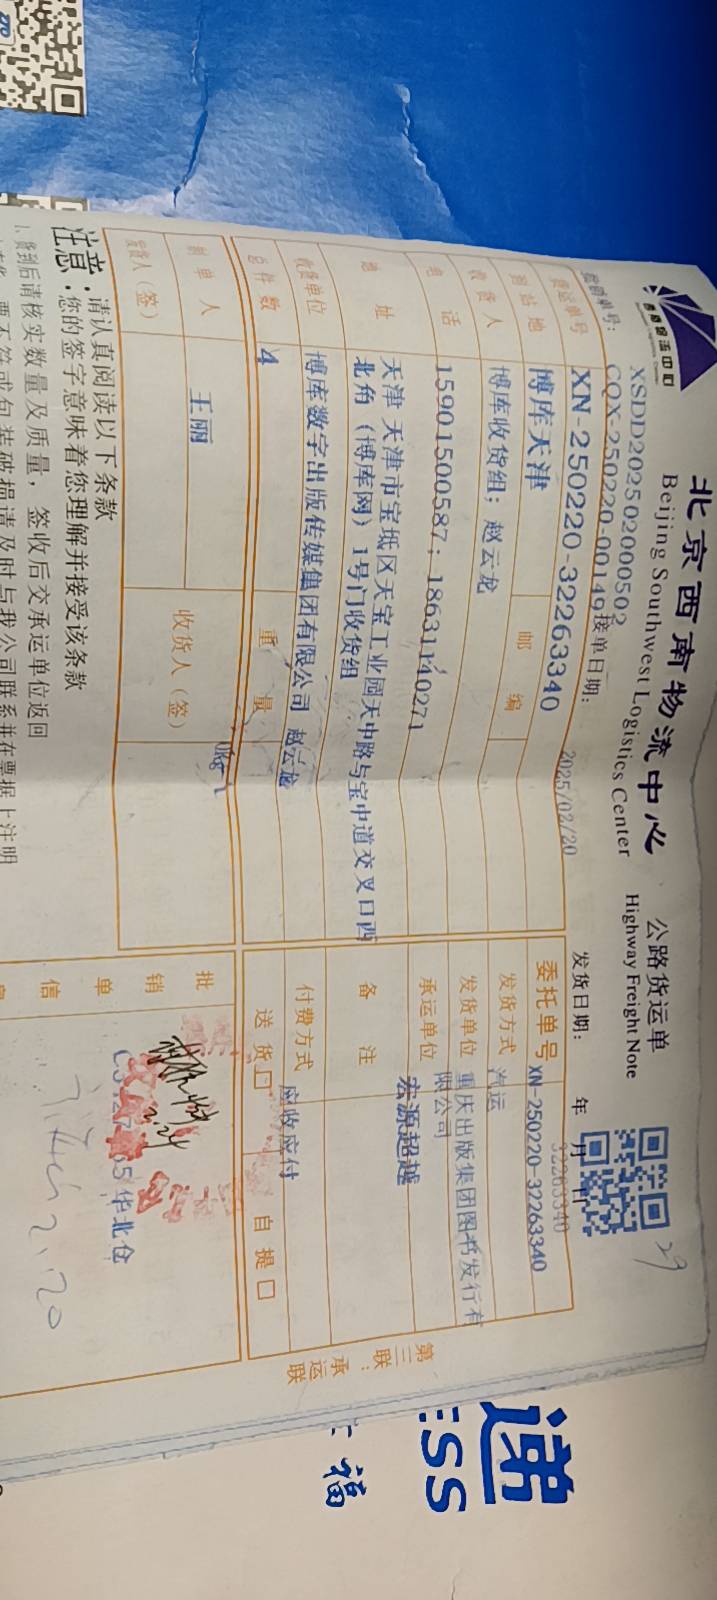 西南物流中心
北京西南物流中心 公路货运单
Beijing Southwest Logistics Center Highway Freight Note
营销单号: XSDD202502000502
CQX-250220-00149 接单日期: 2025/02/20 发货日期: 年 月 日
货运单号 XN-250220-32263340 委托单号 XN-250220-32263340
32263340
到站地 博库天津 邮编 发货方式 汽运
收货人 博库收货组:赵云龙 发货单位 重庆出版集团图书发行有
限公司
电话 15901500587;18631140271 承运单位 宏源超越
地址 天津 天津市宝坻区天宝工业园天中路与宝中道交叉口西
北角(博库网)1号门收货组
备注
收货单位 博库数字出版传媒集团有限公司 赵云龙 付费方式 应收应付
总件数 4 重量 送货□ 自提□
制单人 王丽 收货人(签)
发货人(签)
批 销 单 信
华北仓
2.20
29
第三联:承运联
注意:请认真阅读以下条款
您的签字意味着您理解并接受该条款
1.货到后请核实数量及质量,签收后交承运单位返回
要不符或包装破损请及时与我公司联系并在票据上注明
递
ESS
福